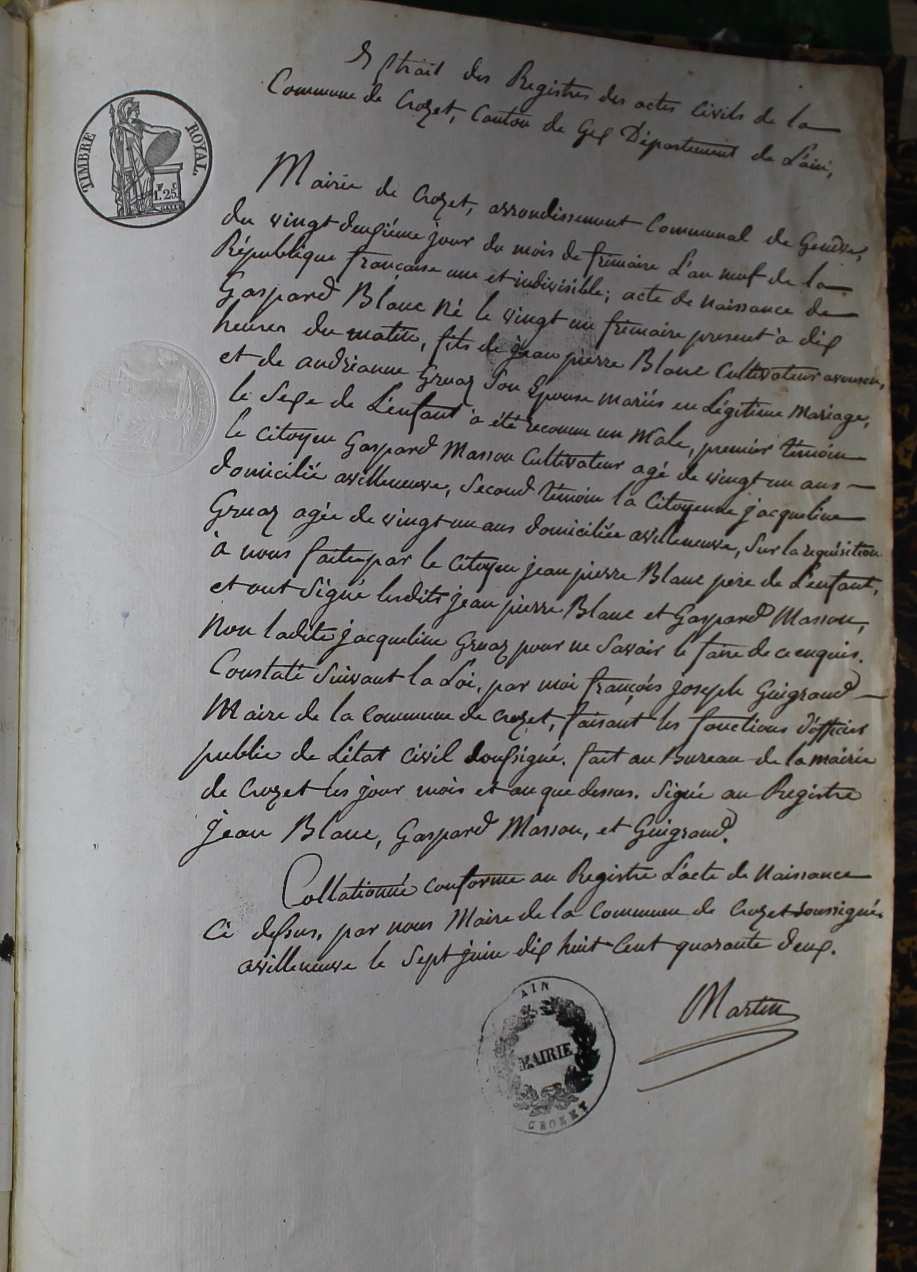 Extrait des Registres des actes civils de la
Commune de Crozet, Canton de Gex Département de L'ain,
TIMBRE ROYAL
1. F 25. C
Mairie de Crozet, arrondissement Communal de Genève,
du vingt deuxième jour du mois de frimaire L'an neuf de la
République française une et indivisible; acte de naissance de
Gaspard Blanc Né le vingt un frimaire present à dix
heures du matin, fils de jean pierre Blanc Cultivateur
et de andrianne Gruaz Son Epouse mariés en Légitime Mariage,
le Sexe de L'enfant à été reconnu un Mâle, premier témoin
le Citoyen Gaspard Masson Cultivateur agé de vingt un ans
domicilié avilleneuve, Second témoin la Citoyenne jacqueline
Gruaz agée de vingt un ans domiciliée avilleneuve, Sur la requisition
à nous faite par le Citoyen jean pierre Blanc père de L'enfant,
et ont Signé lesdits jean pierre Blanc et Gaspard Masson,
Non ladite jacqueline Gruaz pour ne Savoir le faire de ce enquis.
Constaté Suivant la Loi, par moi françois joseph Guigrand
Maire de la Commune de Crozet, faisant les fonctions d'officier
public de L'état Civil Soussigné. fait au Bureau de la mairie
de Crozet les jour mois et an que dessus. Signé au Registre
jean Blanc, Gaspard Masson, et Guigrand.
Collationné conforme au Registre L'acte de Naissance
Ci dessus, par nous Maire de la Commune de Crozet soussigné,
avilleneuve le Sept juin dix huit Cent quarante deux.
Martin
AIN
MAIRIE
CROZET